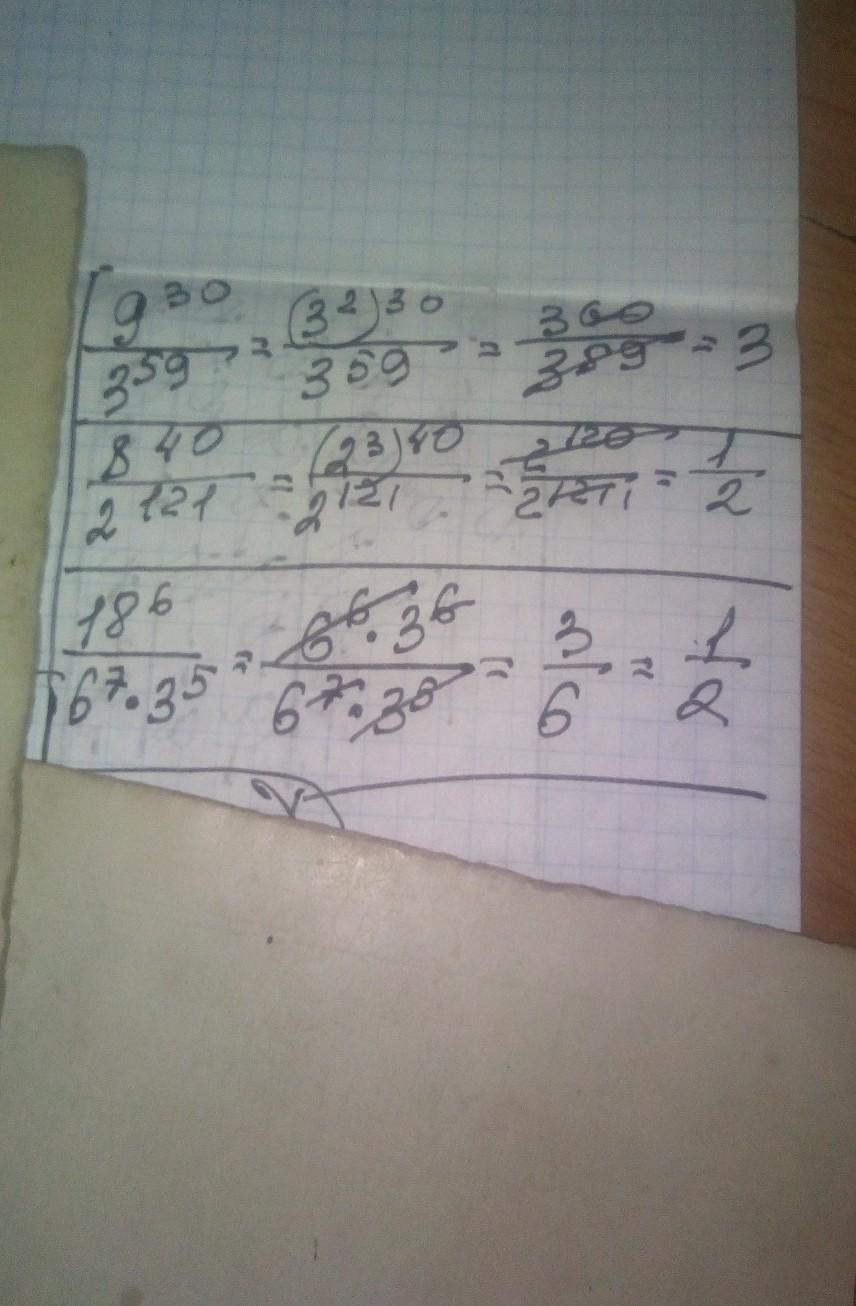 9^30/3^59 = (3^2)^30/3^59 = 3^60/3^59 = 3
8^40/2^121 = (2^3)^40/2^121 = 2^120/2^121 = 1/2
18^6/6^7·3^5 = 6^6·3^6/6^7·3^5 = 3/6 = 1/2